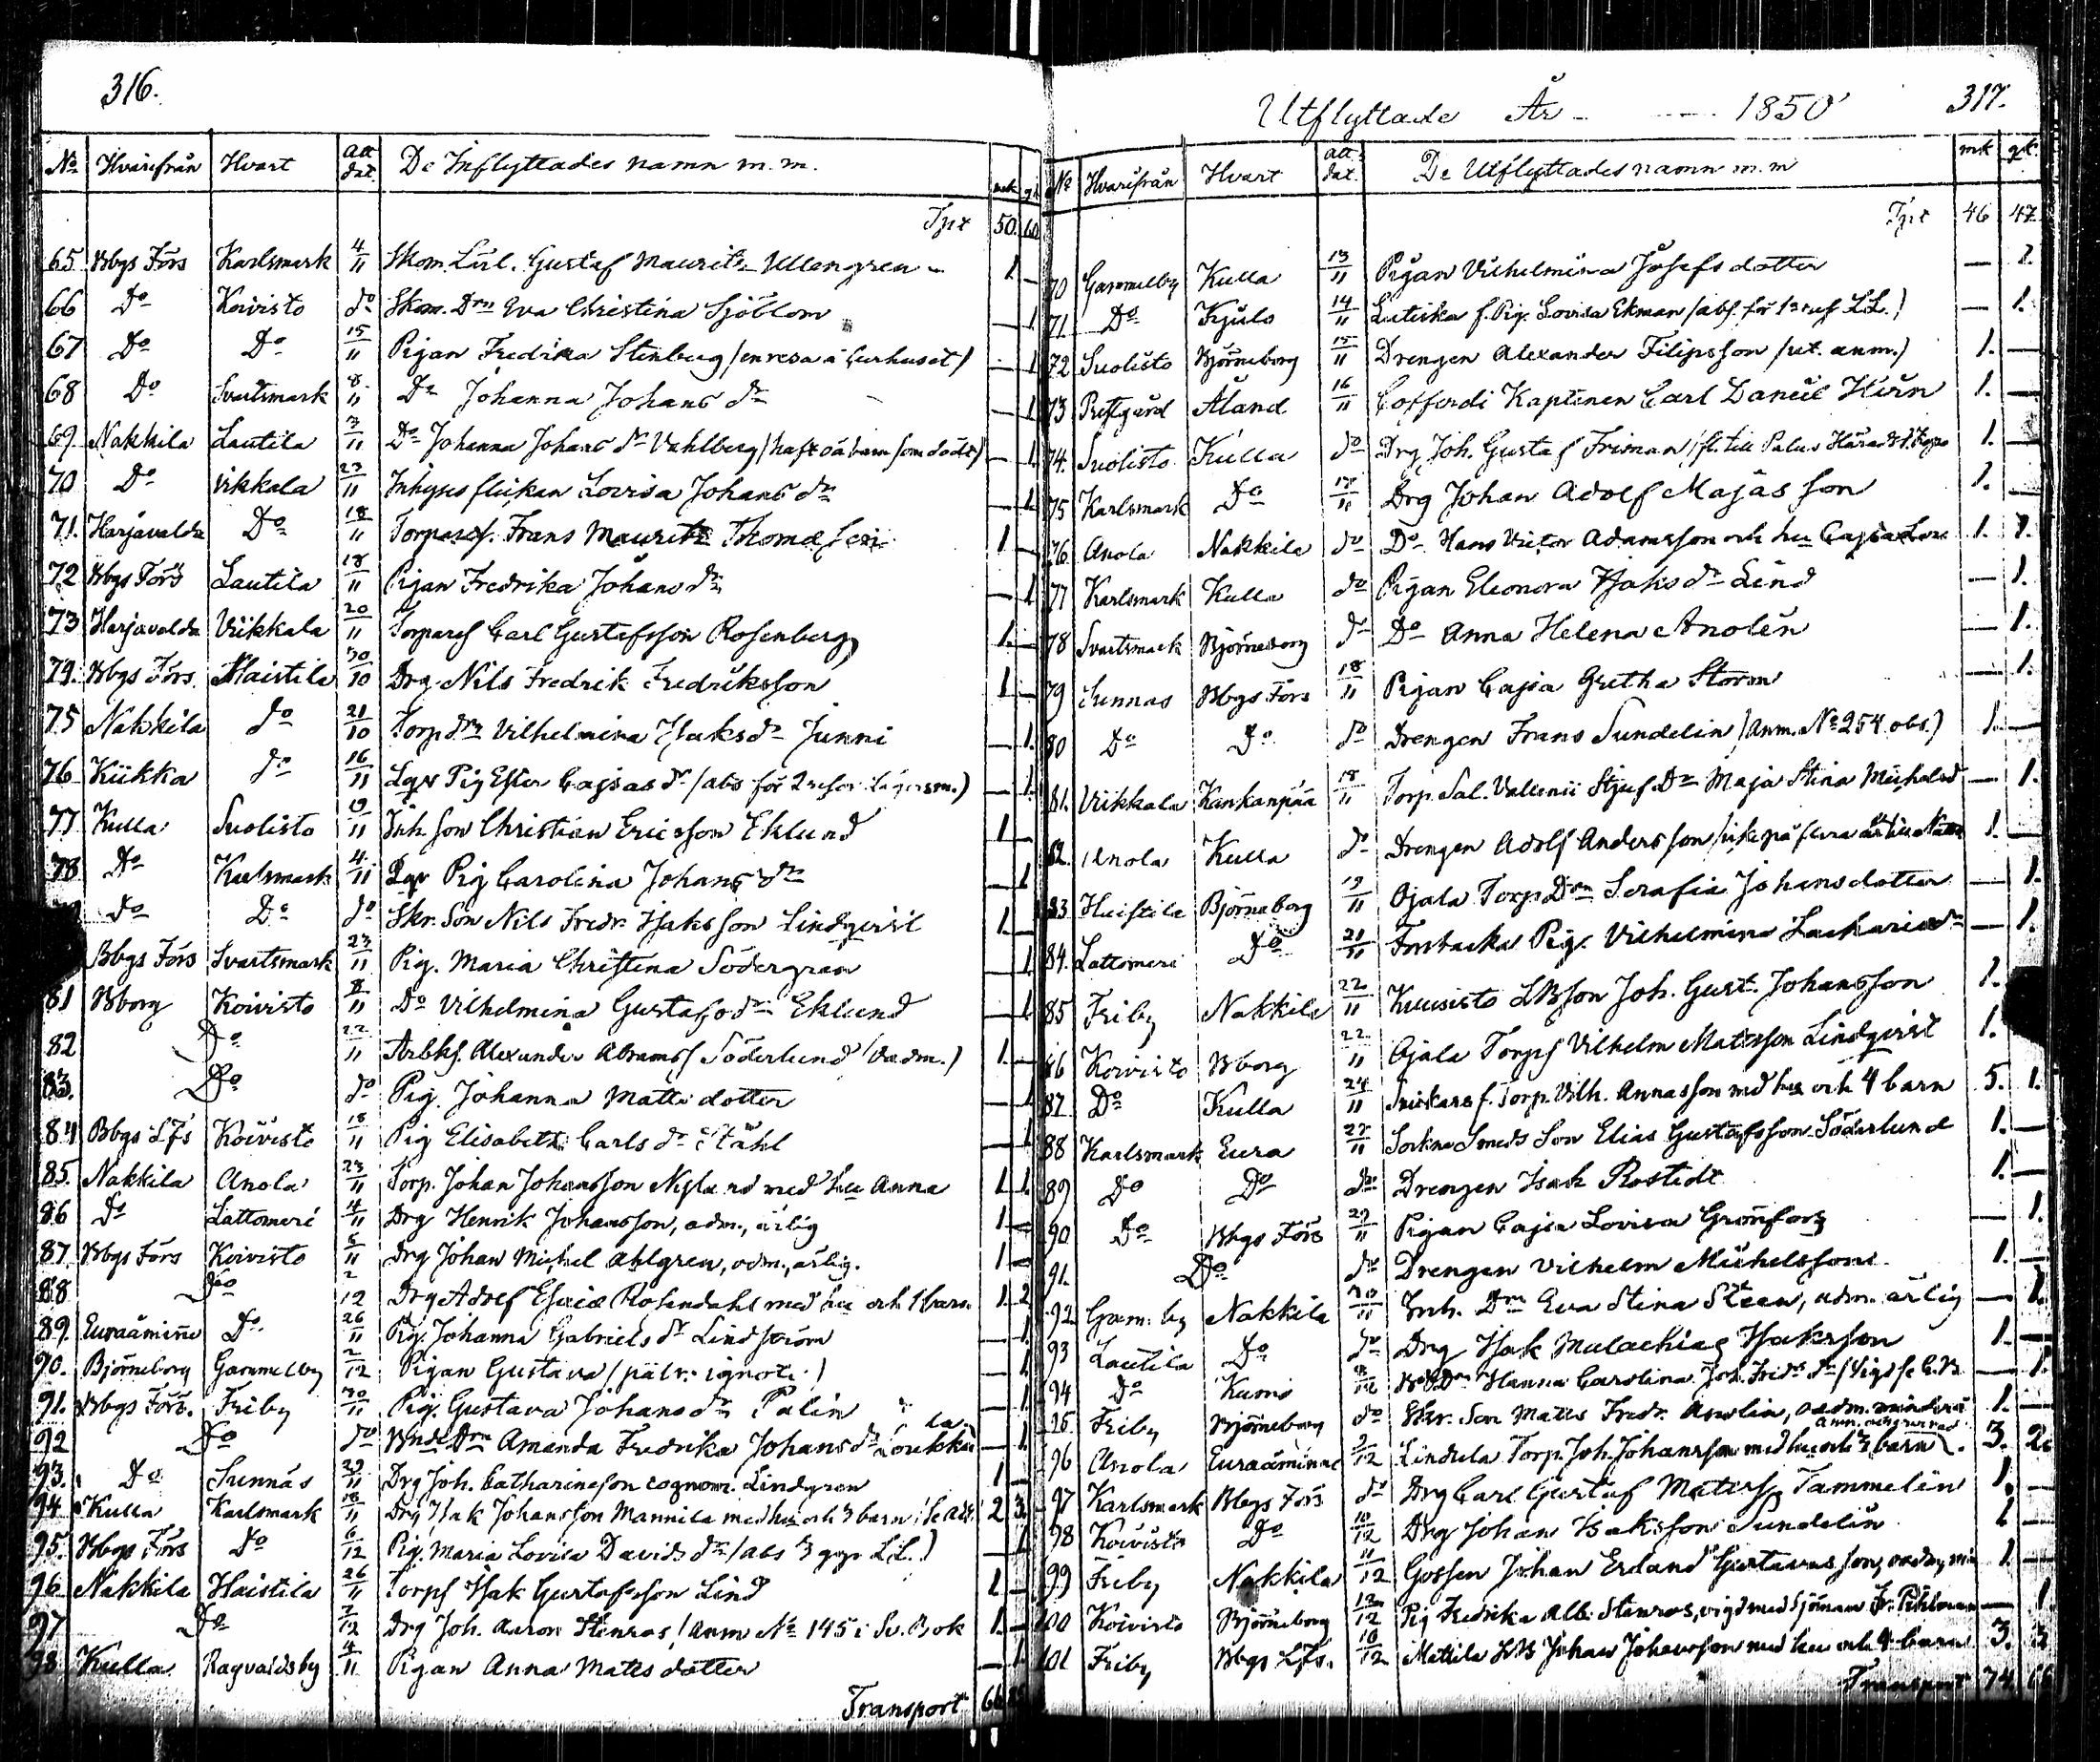 316.
No Hvarifrån Hvart Att. dat. De Inflyttades namn m. m. mk qk
Tpt 50. 60
65 Bbgs Förs Karlsmark 4/11 Skom. Lärl. Gustaf Maurits Ullengren 1 —
66 Do Koivisto do Skom. Drn Eva Christina Sjöblom — 1
67 Do Do 15/11 Pigan Fredrika Stenberg / en resa å Curhuset / — 1
68 Do Svartsmark 8/11 Do Johanna Johans dr — 1
69. Nakkila Lautila 3/11 Do Johanna Johans dr Vahlberg / haft oä barn som dödt / — 1.
70 Do Vikkala 23/11 Inhyses flickan Lovisa Johans dr — 1.
71. Harjavalda Do 18/11 Torpares. Frans Maurits Thomæ son 1 —
72 Bbgs Förs Lautila 18/11 Pigan Fredrika Johans dr — 1
73 Harjavalda Viikkala 20/11 Torpares Carl Gustafsson Rosenberg 1. —
74. Bbgs Förs Haistila 30/10 Drg Nils Fredrik Fredriksson 1 —
75 Nakkila do 21/10 Torp drn Vilhelmina Isaksdr Junni — 1.
76 Kiikka do 16/11 Lgr Pig Ester Cajsas dr / abs för 2 resor lägersm. ) — 1.
77 Kulla Suolisto 19/11 Inh. son Christian Ericsson Eklund 1 —
78 Do Karlsmark 4/11 Lgr Pig Carolina Johans dr — 1
do Do do Skr. Son Nils Fredr. Isaksson Lindqvist 1 —
Bbgs Förs Svartsmark 23/11 Pig. Maria Christina Södergran — 1.
81 Bborg Koivisto 8/11 Do Vilhelmina Gustafs dr Eklund — 1
82 Do 22/11 Arbks. Alexander Abramss Söderlund (oadm.) 1. —
83. Do do Pig. Johanna Matts dotter — 1
84 Bbgs Lfs Koivisto 18/11 Pig Elisabeth Carls dr Ståhl — 1
85. Nakkila Anola 23/11 Torp. Johan Johansson Nyland med hu Anna 1. 1.
86 Do Lattomeri 4/11 Drg Henrik Johansson, adm., ärlig 1 —
87 Bbgs Förs Koivisto 5/11 Drg Johan Michel Ahlgren, adm., ärlig. 1 —
88 Do 2/12 Drg Adolf Esaiæ Rosendahl med hu och 1 barn. 1. 2
89. Euraåminne Do 26/11 Pig. Johanna Gabriels dr Lindström — 1
90. Björneborg Gammelby 2/12 Pigan Gustava / patr. ignoti / — 1
91. Bbgs Förs. Friby 30/11 Pig. Gustava Johans dr Palin — 1
92 Do do Bnd. Drn Amanda Fredrika Johans dr Loukkala — 1.
93. Do Sunnäs 29/11 Drg Joh. Catharineson cognom. Lindgren 1 —
94 Kulla Karlsmark 18/11 Drg Isak Johansson Mannila med hu och 3 barn 2 3.
95. Bbgs Förs Do 6/12 Pig. Maria Lovisa Davids dr / abs 3 ggr L.L. ) — 1
96 Nakkila Haistila 26/11 Torps Isak Gustafsson Lind 1 —
97 Do 2/12 Drg Joh. Aaron Stenros / Anm No 145 i Sv. Bok 1. —
98 Kulla Ragvaldsby 4/11 Pigan Anna Matts dotter — 1.
Transport 66
Utflyttade År 1850 317.
No Hvarifrån Hvart Att. dat. De Utflyttades namn m. m mk qk.
Tpt 46 47.
70 Gammelby Kulla 13/11 Pigan Vilhelmina Josefs dotter — 1.
71 Do Kjulo 14/11 Lutiska f. Pig. Lovisa Ekman / abs. för 1a res L.L. ) — 1.
72 Suolisto Björneborg 15/11 Drengen Alexander Filipsson / ut. anm.) 1. —
73 Prestgård Åland 16/11 Cofferdi Kaptenen Carl Daniel Hirn 1. —
74. Suolisto Kulla do Drg Joh. Gustaf Friman / fl. till Palus 1. —
75 Karlsmark Do 17/11 Drg Johan Adolf Majas son 1. —
76 Anola Nakkila do Do Hans Victor Adamsson och hu Cajsa Lovs 1. 1.
77 Karlsmark Kulla do Pigan Eleonora Isaks dr Lind — 1.
78 Svartsmark Björneborg do Do Anna Helena Anolén — 1.
79 Sunnäs Bbgs Förs 18/11 Pigan Cajsa Gretha Storm — 1.
80 Do Do do Drengen Frans Sundelin / Anm. No 254 obs.) 1. —
81. Viikkala Kankanpää 18/11 Torp. Sal. Vallenii Stjuf Dr Maja Stina Michelsd — 1.
82. Anola Kulla do Drengen Adolf Andersson 1. —
83 Haistila Björneborg 19/11 Ojala Torp. Drn Serafia Johansdotter — 1.
84. Lattomeri Do 21/11 Forsbacka Pig. Vilhelmina Zachariædr — 1.
85 Friby Nakkila 22/11 Kuusisto LBson Joh. Gust. Johansson 1.
86 Koivisto Bborg 22/11 Ojala Torps Vilhelm Mattsson Lindqvist 1.
87. Do Kulla 24/11 f. Torp. Vilh. Annasson med hu och 4 barn 5. 1.
88 Karlsmark Eura 27/11 Sockne Smeds Son Elias Gustafsson Söderlund 1. —
89 Do Do do Drengen Isak Rostedt 1. —
90 Do Bbgs Förs 29/11 Pigan Cajsa Lovisa Grönfors — 1.
91. Do do Drengen Vilhelm Michelsson 1. —
92 Gam: by Nakkila 30/11 Inh. Drn Eva Stina Steen, adm. ärlig — 1.
93 Lautila Do do Drg Isak Malachias Isaksson 1. —
94 Do Kumo /12 Hanna Carolina Joh. Fred. dr — 1.
95. Friby Björneborg do Skr. Son Matts Fredr. Anolin, oadm. minderå 1. —
96 Anola Euraåminne 9/12 Lindula Torp. Joh. Johansson med hu och 3 barn. 3. 2.
97 Karlsmark Bbgs Förs do Drg Carl Gustaf Matss Tammelin 1. —
98 Koivisto Do 10/12 Drg Johan Isaksson Sundelin 1 —
99 Friby Nakkila 11/12 Gossen Johan Erland Gustavas son, oadm, min 1. —
100 Koivisto Björneborg 12/12 Pig Fredrika Alb. Stenros, vigd med Sjöman Fr. Pihlman — 1.
101 Friby Bbgs Lfs. 10/12 Mattila LB Johan Johansson med hu och 4 barn 3. 3
Transport 74 66